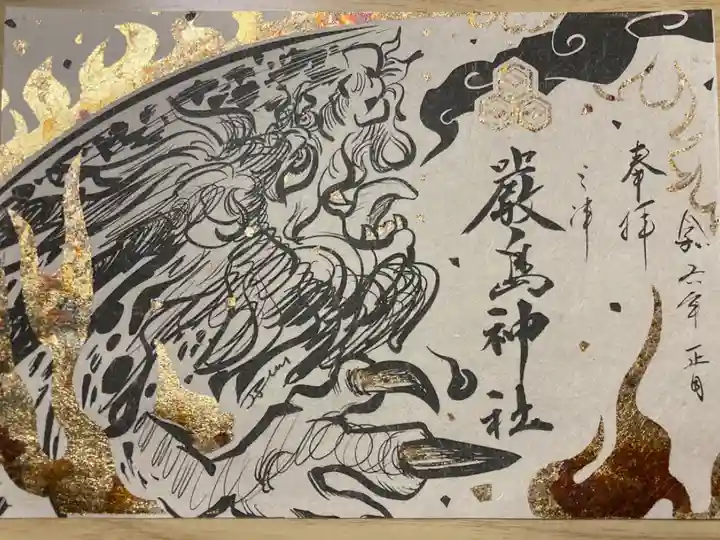 令六年 正月
奉拝
三津
嚴島神社